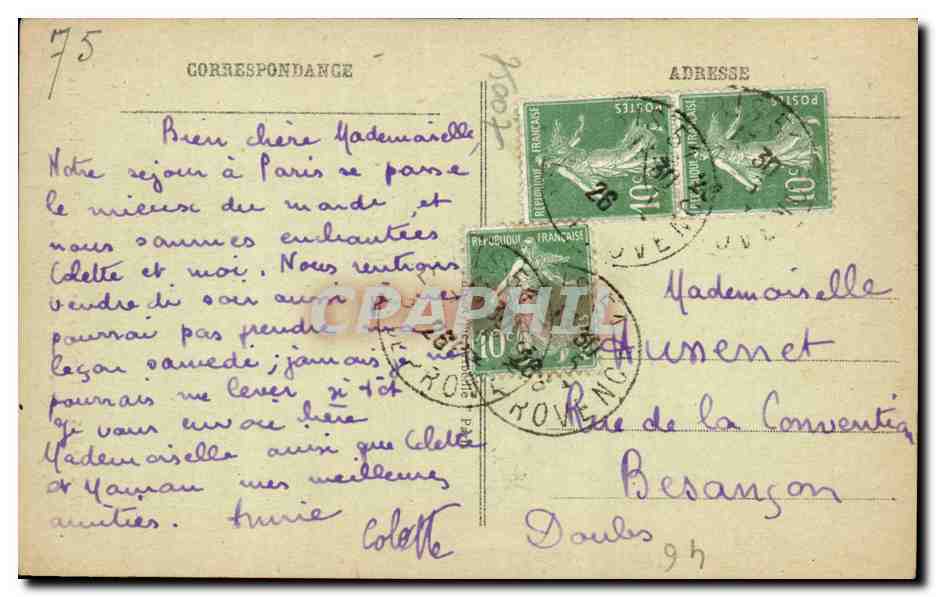 75
CORRESPONDANCE
Bien chère Mademoiselle,
Notre séjour à Paris se passe
le mieux du monde, et
nous sommes enchantées
Colette et moi. Nous rentrons
vendredi soir aussi je ne
pourrai pas prendre ma
leçon samedi; jamais je ne
pourrais me lever si tôt
Je vous envoie chère
Mademoiselle ainsi que Colette
et Maman mes meilleures
amitiés. Annie
Colette
ADRESSE
75007
RÉPUBLIQUE FRANÇAISE
POSTES
10c
RÉPUBLIQUE FRANÇAISE
POSTES
10c
RÉPUBLIQUE FRANÇAISE
10c
30
26
PROVENCE
CPAPHIL
Mademoiselle
Aussenet
Rue de la Convention
Besançon
Doubs
94